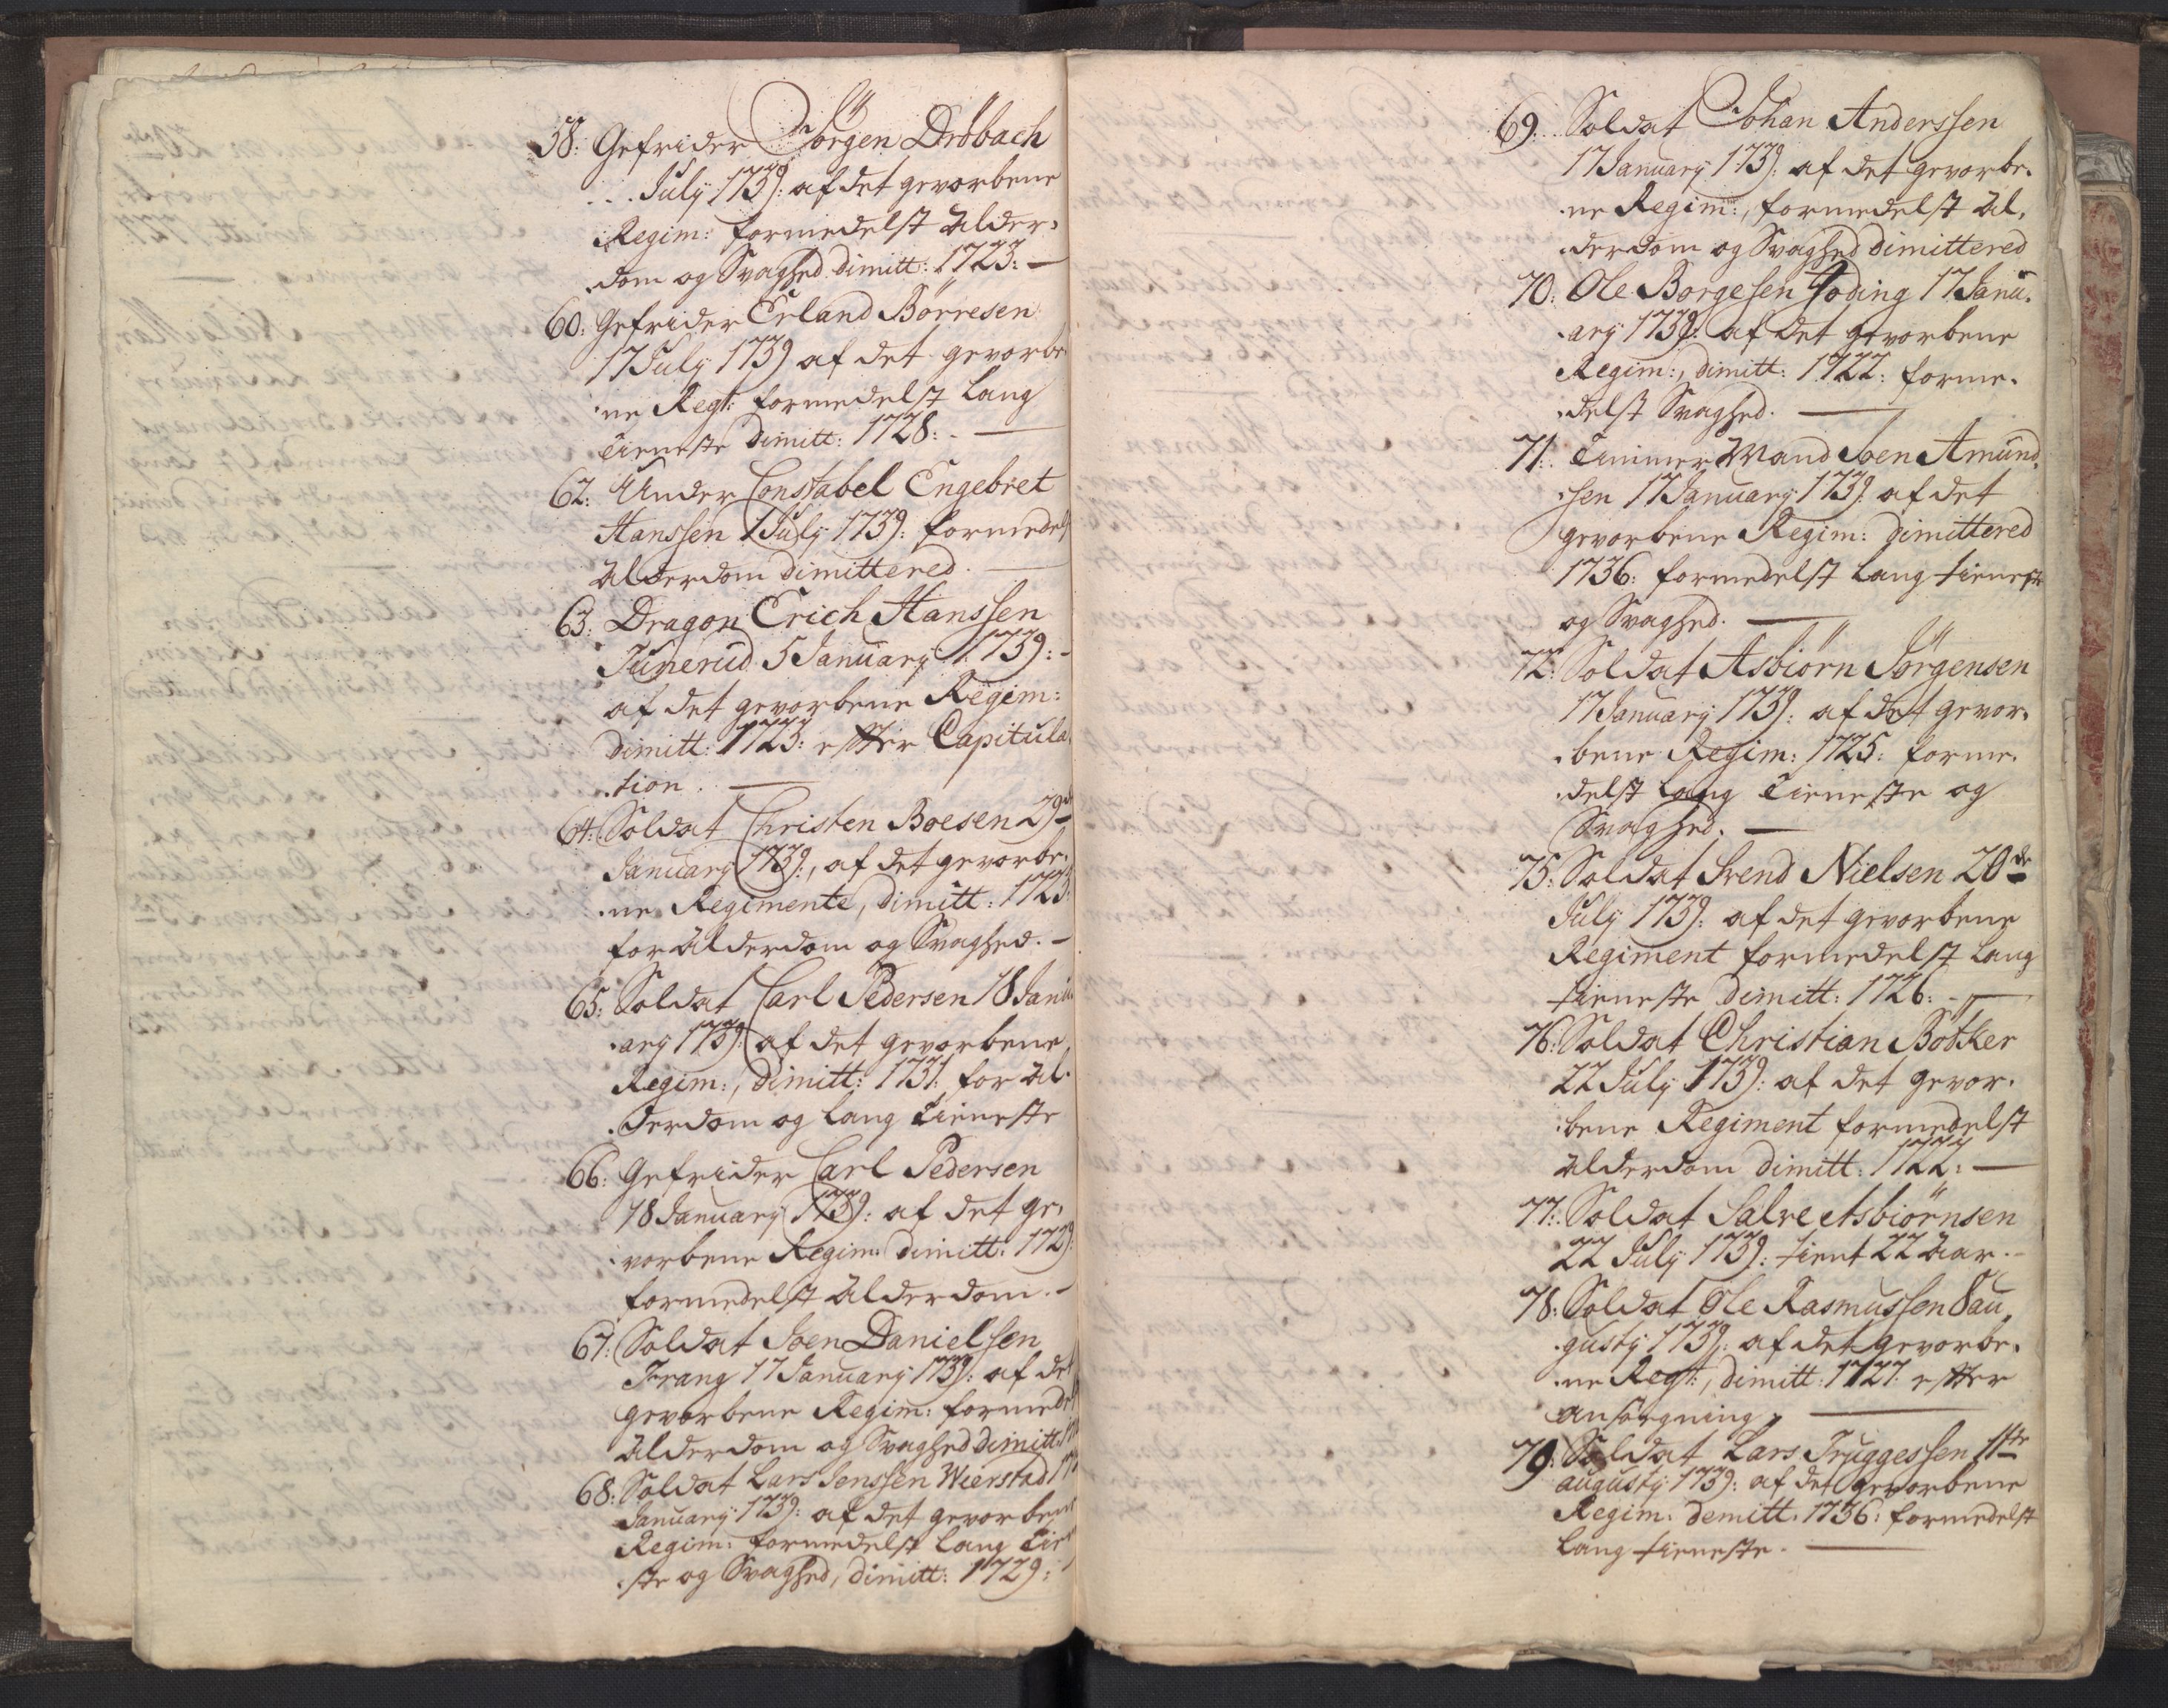 58: Gefrider Jörgen Dröbach
... July 1739: af det gevorbene
Regim: formedelst Alder,
,dom og Svaghed dimitt: 1723: —
60: Gefrider Erland Börresen
17 July 1739 af det gevorbe,
,ne Regt: formedelst Lang
Tieneste dimitt: 1728: —
62: Under Constabel Engebret
Hanssen 1 July 1739: formedelst
Alderdom dimittered. —
63: Dragon Erich Hanssen
Junerud 5 January 1739: -
af det gevorbene Regim:
dimitt: 1723: efter Capitula,
,tion. —
64: Soldat Christen Boesen 29de
January 1739:, af det gevorbe,
,ne Regimente, dimitt: 1723:
for Alderdom og Svaghed. -
65: Soldat Carl Pedersen 18 Janu,
,ary 1739: af det gevorbene
Regim:, dimitt: 1731: for Al,
,derdom og Lang Tieneste
66: Gefrider Carl Pedersen
18 January 1739: af det ge,
,vorbene Regim: dimitt: 1729:
formedelst Alderdom. -
67: Soldat Joen Danielsen
Frang 17 January 1739: af det
gevorbene Regim: formedelst
Alderdom og Svaghed dimitt:
68: Soldat Lars Jenssen Wierstad 17
January 1739: af det gevorbene
Regim: formedelst Lang Tiene,
,ste og Svaghed, dimitt: 1729:
69: Soldat Johan Anderssen
17 January 1739: af det gevorbe,
,ne Regim:, formedelst Al,
,derdom og Svaghed dimittered
70: Ole Borgesen Goding 17 Janu,
,ary 1739: af det gevorbene
Regim:, dimitt: 1722: forme,
,delst Svaghed. —
71: Timmer Mand Joen Amund,
,sen 17 January 1739: af det
gevorbene Regim: dimittered
1736: formedelst Lang tieneste
og Svaghed. —
72: Soldat Asbiörn Jörgensen
17 January 1739: af det gevor,
,bene Regim: 1725: forme,
,delst Lang Tieneste og
Svaghed. —
75: Soldat Svend Nielsen 20de
July 1739: af det gevorbene
Regiment formedelst Lang
tieneste dimitt: 1726: —
76: Soldat Christian Bötker
22 July 1739: af det gevor,
,bene Regiment formedelst
Alderdom dimitt: 1722: —
77: Soldat Salve Asbiörnsen
22 July 1739: tient 22 Aar. -
78: Soldat Ole Rasmussen 8 au,
,gusty 1739: af det gevorbe,
,ne Regt:, dimitt: 1727: efter
ansögning, —
79: Soldat Lars Truggessen 11te
augusty 1739: af det gevorbene
Regim: demitt: 1736: formedelst
Lang tieneste. —